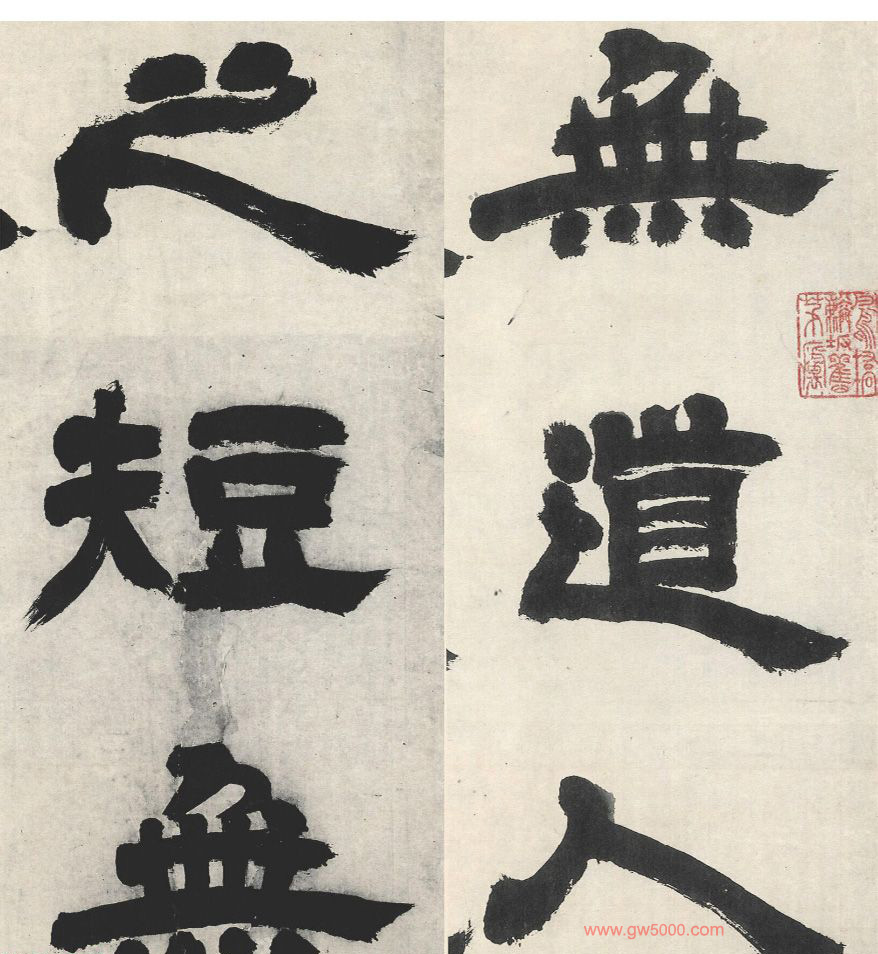 無道人
之短無
www.gw5000.com